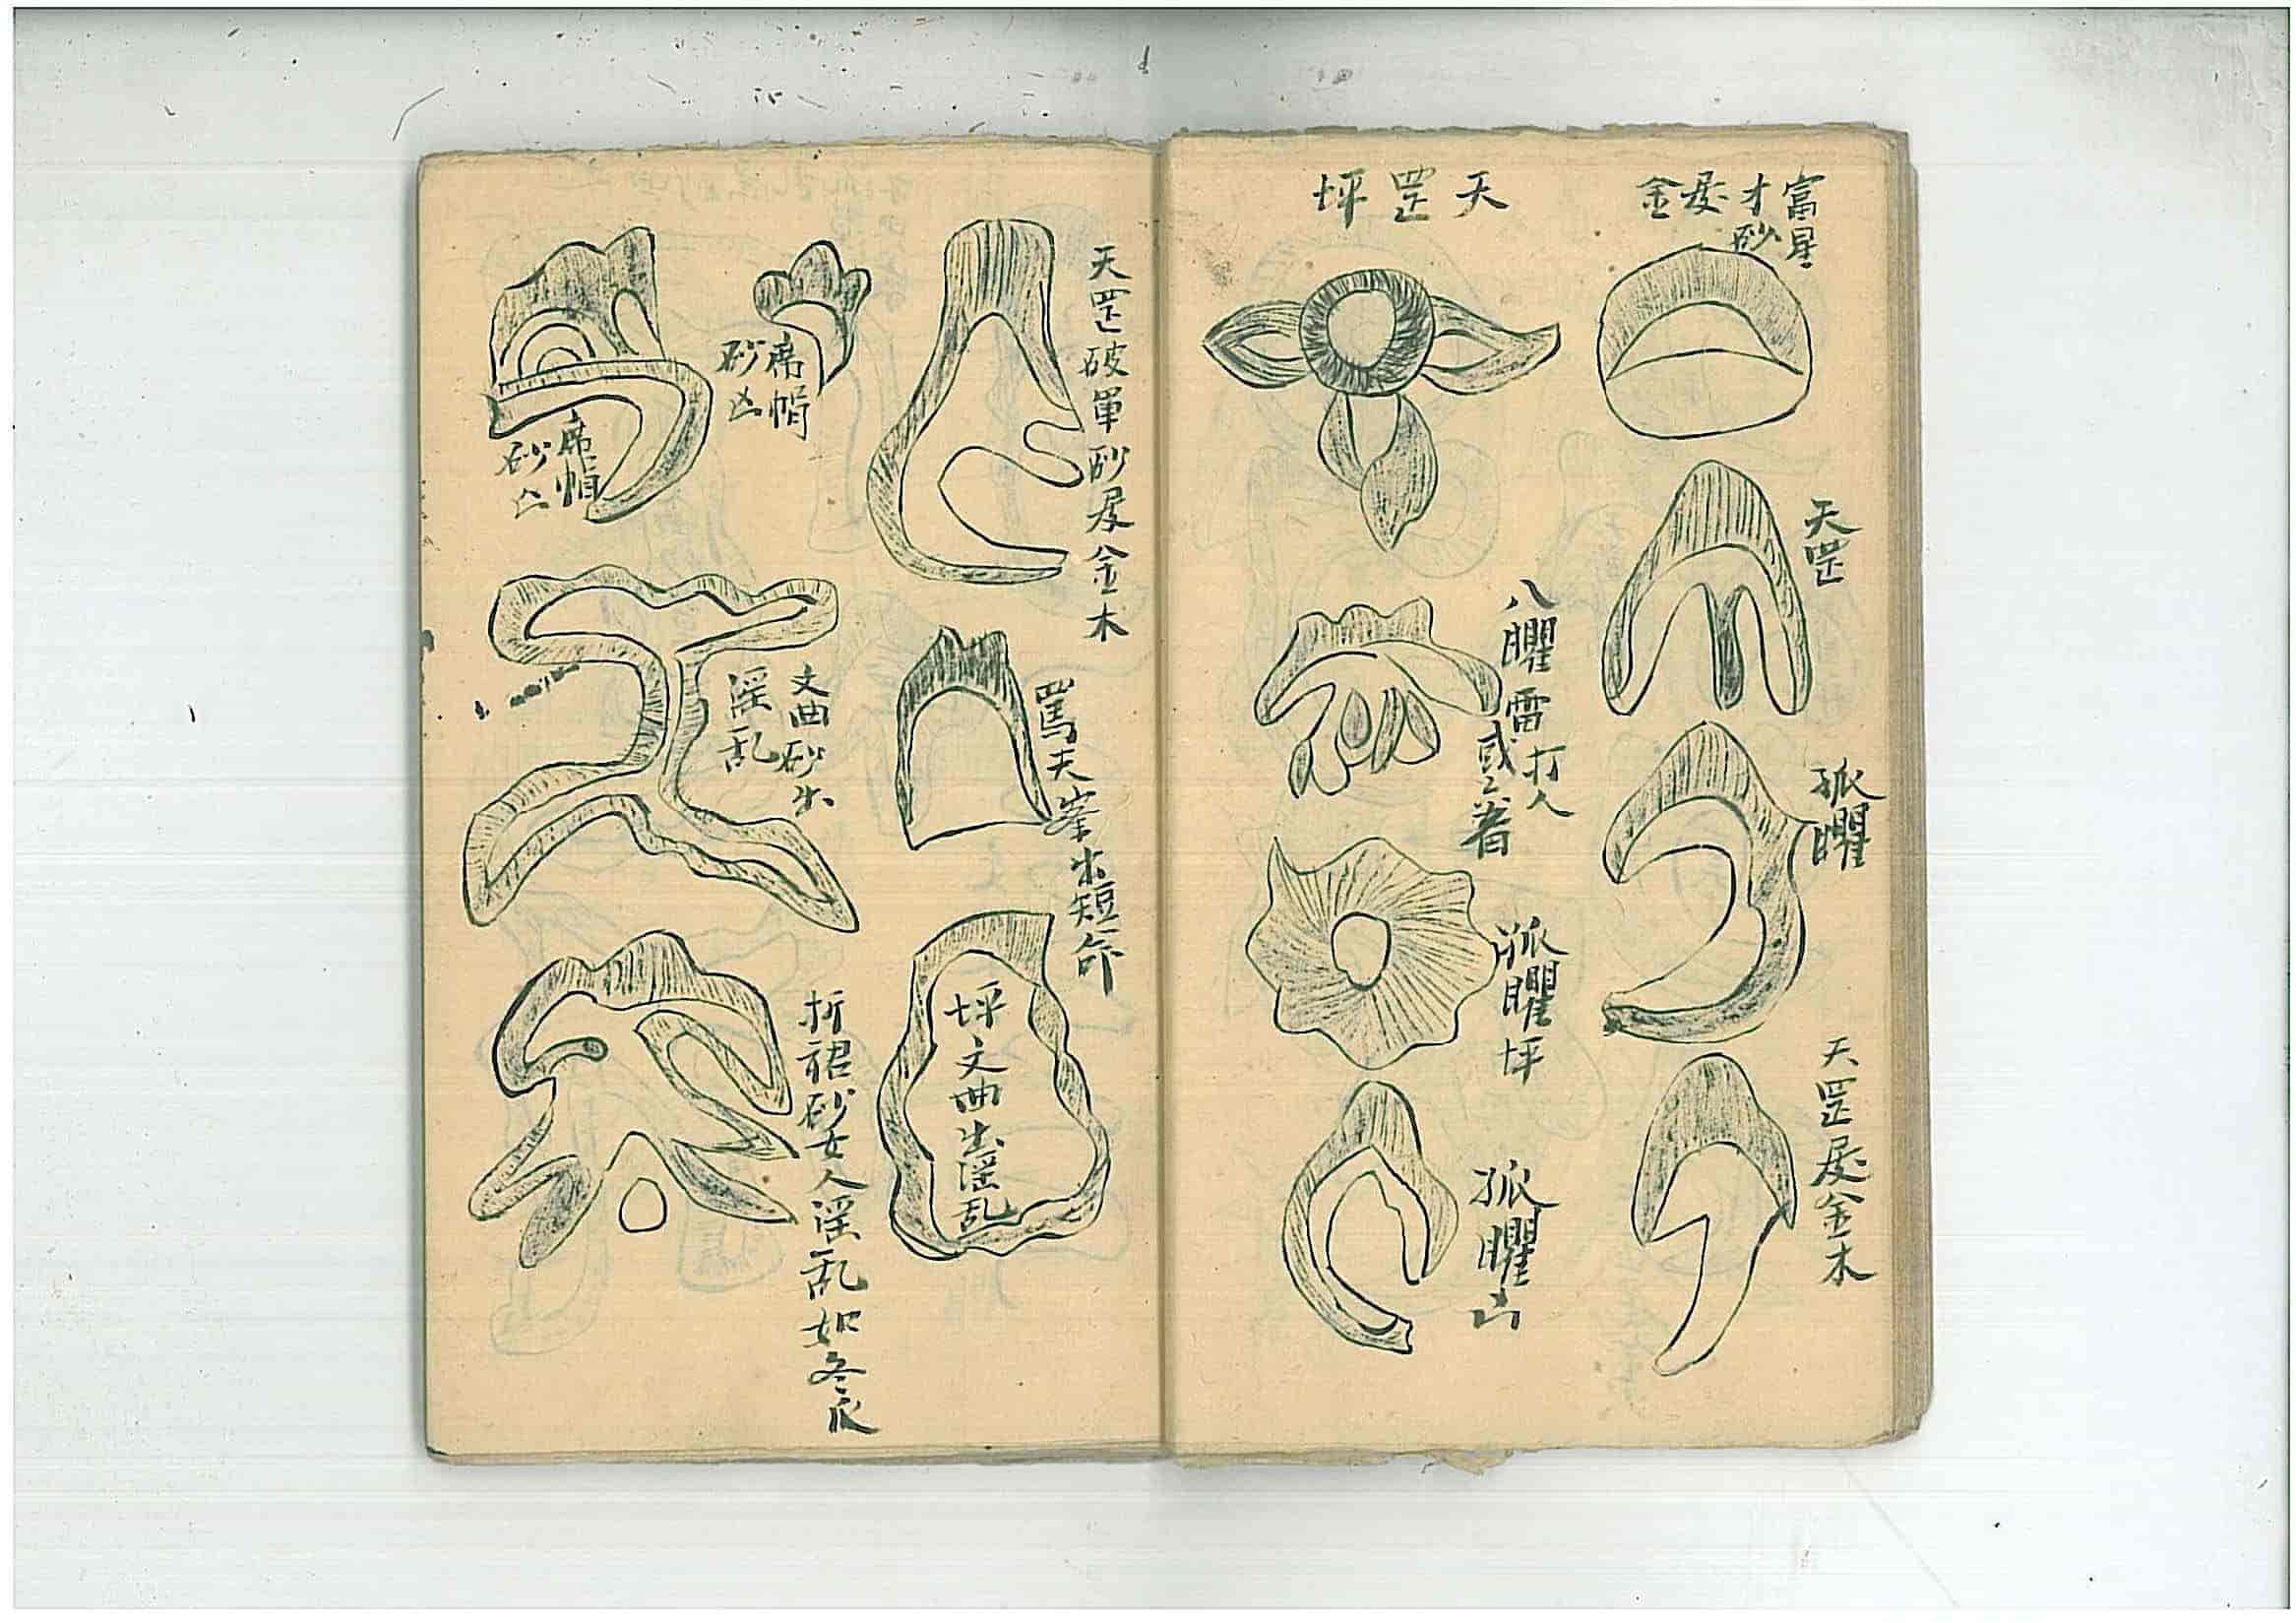 富星
才砂
屋金
天罡
孤曜
天罡屋金木
天罡坪
八曜雷打人
孤曜坪
孤曜山
天罡破軍砂屋金木
罵天峯出短命
坪文曲出淫乱
席帽
砂凶
席帽
砂凶
文曲砂出
淫乱
折裙砂女人淫乱如冬瓜